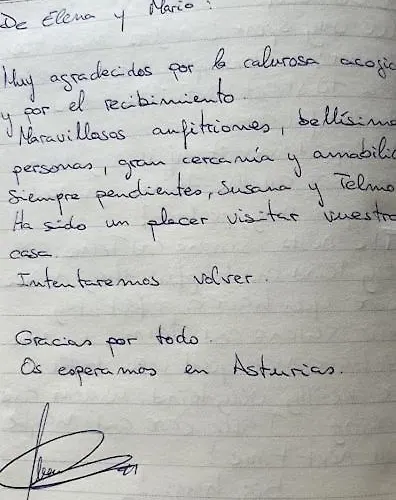 De Elena y Mario:
Muy agradecidos por la calurosa acogid
y por el recibimiento.
Maravillosos anfitriones, bellísima
personas, gran cercanía y amabilid
siempre pendientes, Susana y Telmo
Ha sido un placer visitar vuestra
casa.
Intentaremos volver.
Gracias por todo.
Os esperamos en Asturias.